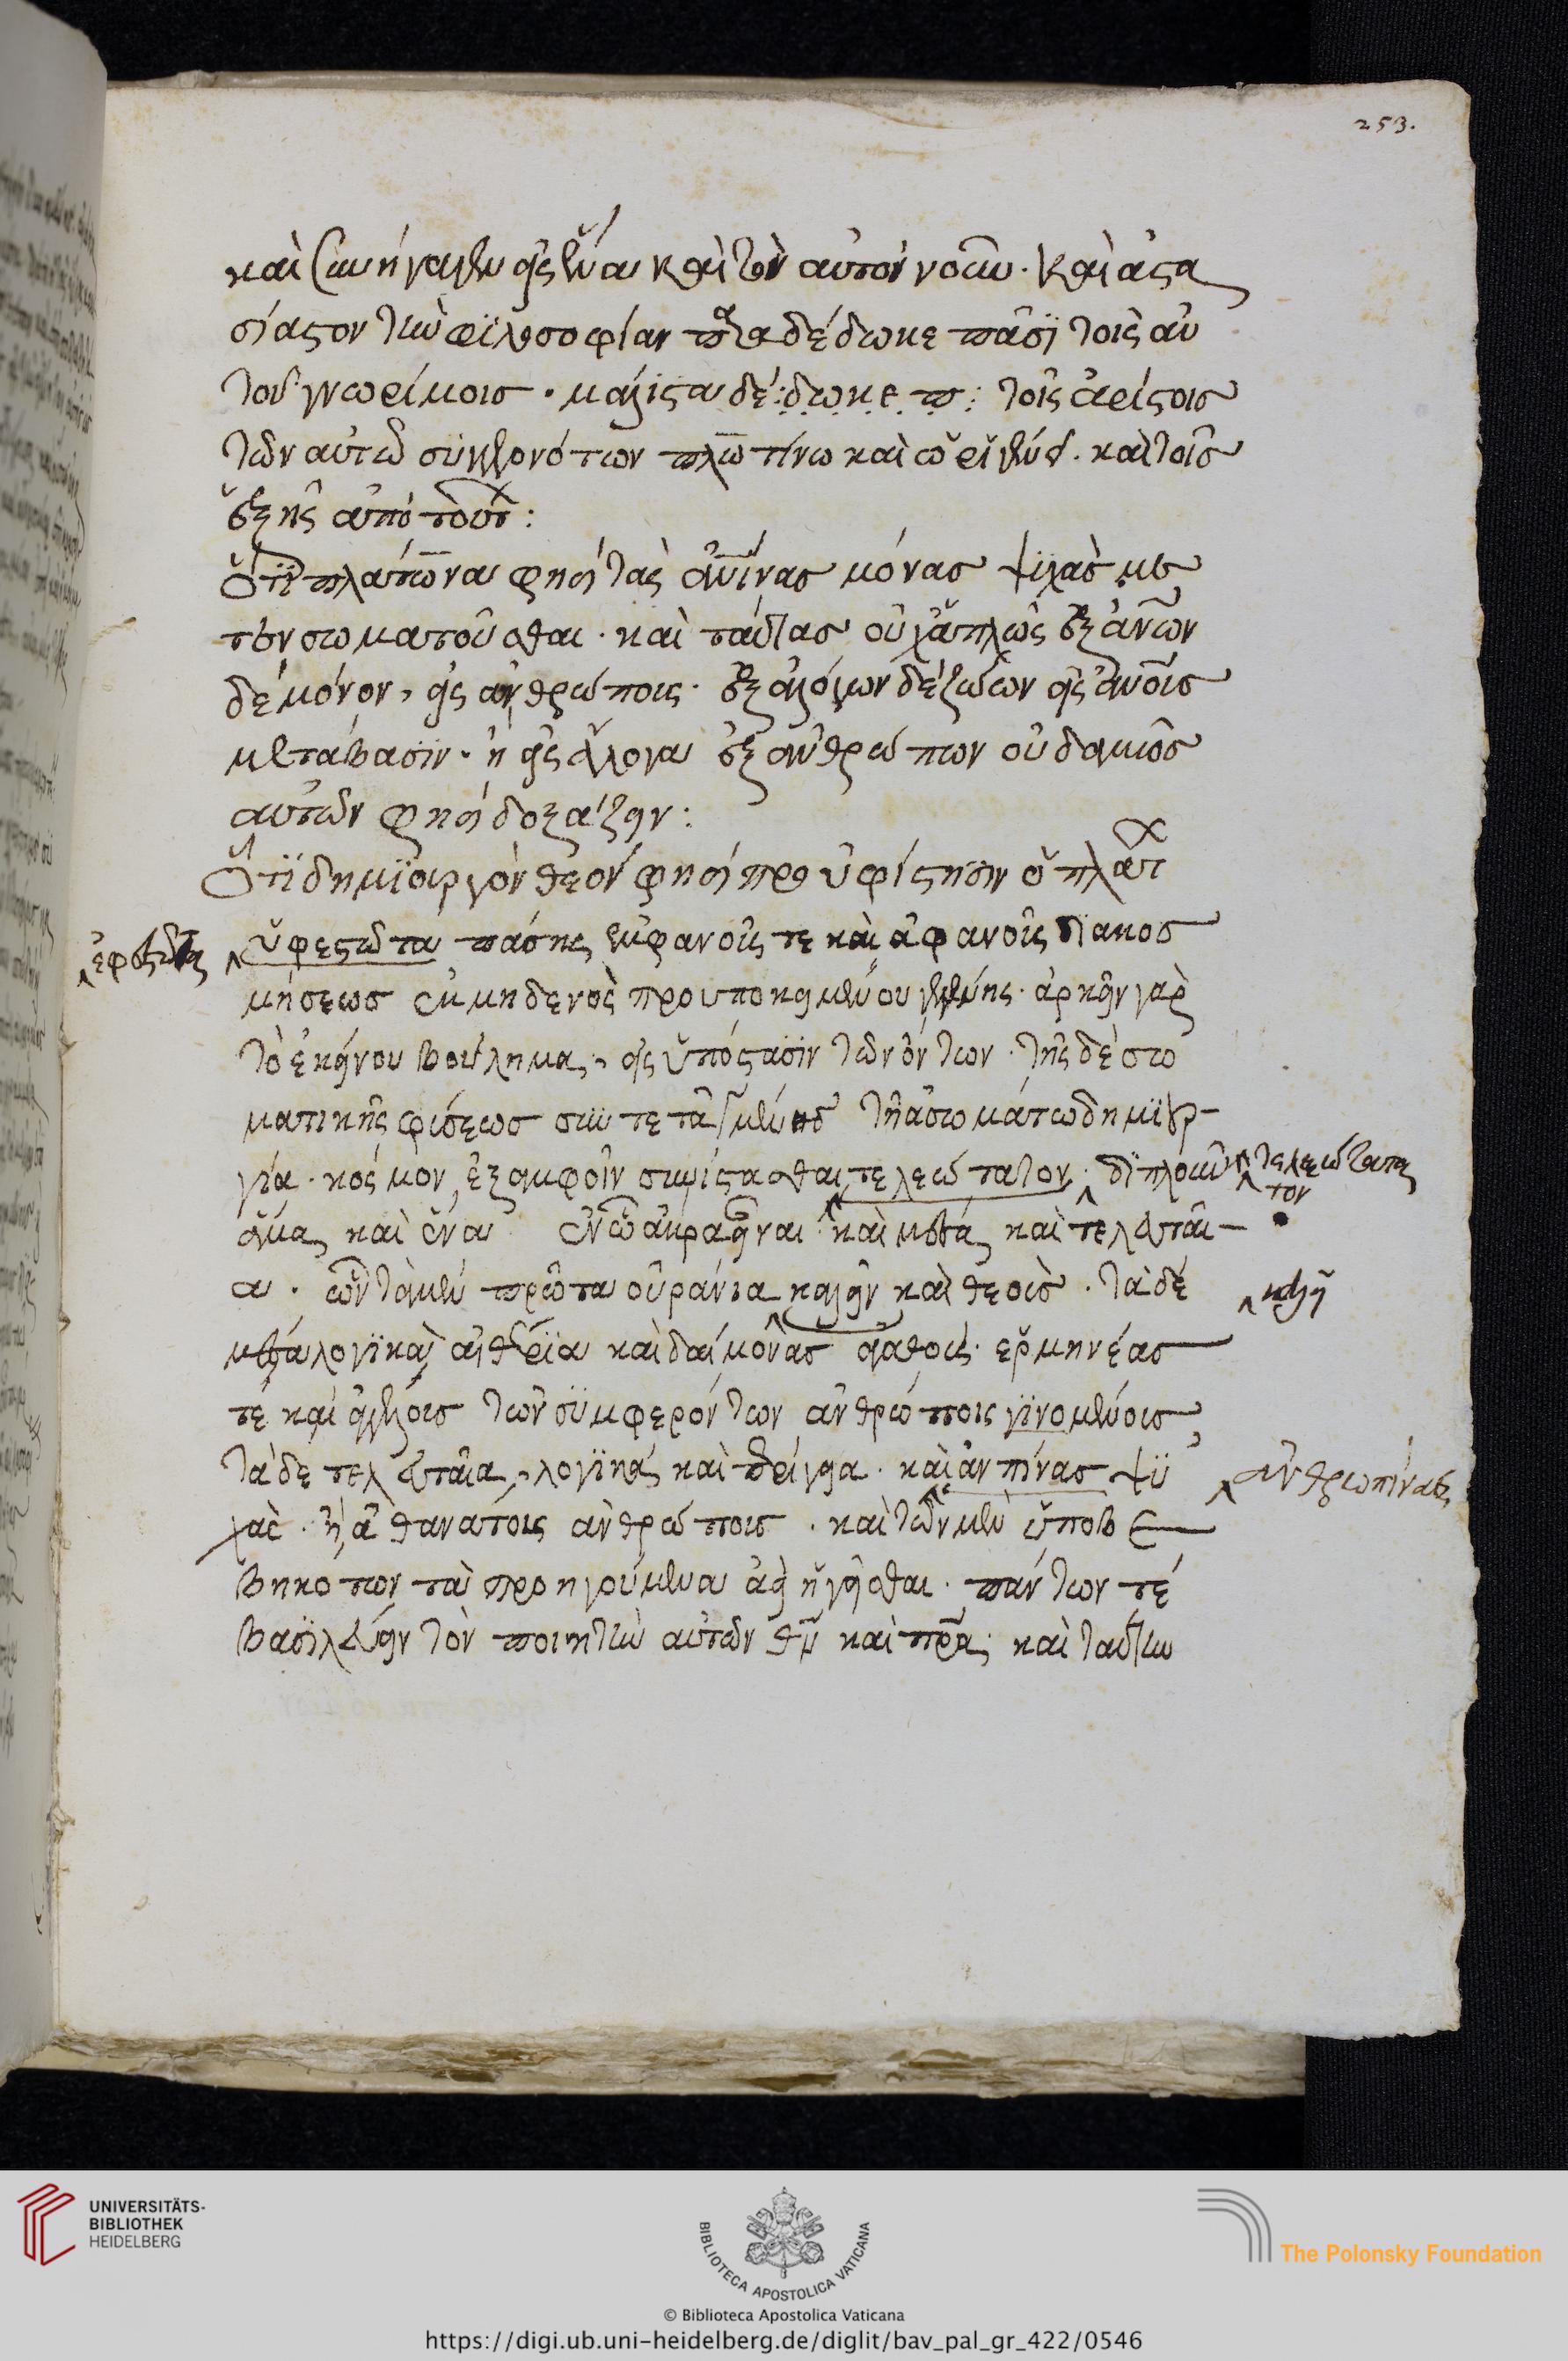 253.
καὶ συνήγαγεν εἰς ἕνα καὶ τὸν αὐτὸν νοῦν· καὶ ἀστα
σίαστον τὴν φιλοσοφίαν παραδέδωκε πᾶσι τοῖς αὐ
τοῦ γνωρίμοις · μάλιστα δέ:δωκε π: τοῖς ἀρίστοις
τῶν αὐτῷ συγγεγονότων πλωτίνω καὶ ὠριγένει. καὶ τοῖς
ἑξῆς ἀπὸ τούτ:
Ὅτι πλάτωνα φησὶ τὰς ἀνίνας μόνας ψυχὰς με
τενσωματοῦσθαι · καὶ ταύτας οὐχ ἁπλῶς ἐξ ἀνων
δὲ μόνον, εἰς ἀνθρώποις· ἐξ ἀλόγων δὲ ζώων εἰς ἀνοις
μετάβασιν· ἢ εἰς ἄλογα ἐξ ἀνθρώπων οὐδαμῶς
αὐτῶν φησὶ δοξάζειν:
Ὅτι δημιουργὸν θεόν φησὶ προυφίστησιν ὁ πλατ
ὑφεστῶτα πάσης ἐμφανοῦς τε καὶ ἀφανοῦς διακοσ
μήσεως ἐκ μηδενὸς προυποκειμένου γενένης· ἀρκεῖν γὰρ
τὸ ἐκείνου βούλημα, εἰς ὑπόστασιν τῶν ὄντων · τῆς δὲ σω
ματικῆς φύσεως συντεταγμένης τῆ ἀσωμάτω δημιουρ-
γία· κόσμον ἐξ ἀμφοῖν συνίστασθαι τελεώτατον · διπλοῦν
ἅμα καὶ ἕνα ἐν ὧ ἄκρα εἶναι καὶ μετά καὶ τελευταῖ-
α · ὧν τὰ μὲν πρῶτα οὐράνια καλεῖν καὶ θεοὺς · τὰ δέ
μετὰ λογικὰ αἰθέρια καὶ δαίμονας ἀγαθοὺς· ἑρμηνέας
τε καὶ ἀγγέλοις τῶν συμφερόντων ἀνθρώποις γινομένοις
τὰ δε τελευταῖα, λογικά καὶ περίγεια · καὶ ἀνπίνας ψυ
χὰς · ἢ ἀθανάτοις ἀνθρώποις · καὶ τῶν μὲν ὑποβε
βηκότων τὰ προηγούμενα ἀεὶ ἡγεῖσθαι · πάντων τέ
βασιλεύειν τὸν ποιητὴν αὐτῶν θν καὶ πρα· καὶ ταύτην
ἐφεστῶτα
τελεώτατα
τον
καλεῖ
ἀνθρωπίνας
UNIVERSITÄTS-
BIBLIOTHEK
HEIDELBERG
BIBLIOTECA APOSTOLICA VATICANA
The Polonsky Foundation
© Biblioteca Apostolica Vaticana
https://digi.ub.uni-heidelberg.de/diglit/bav_pal_gr_422/0546